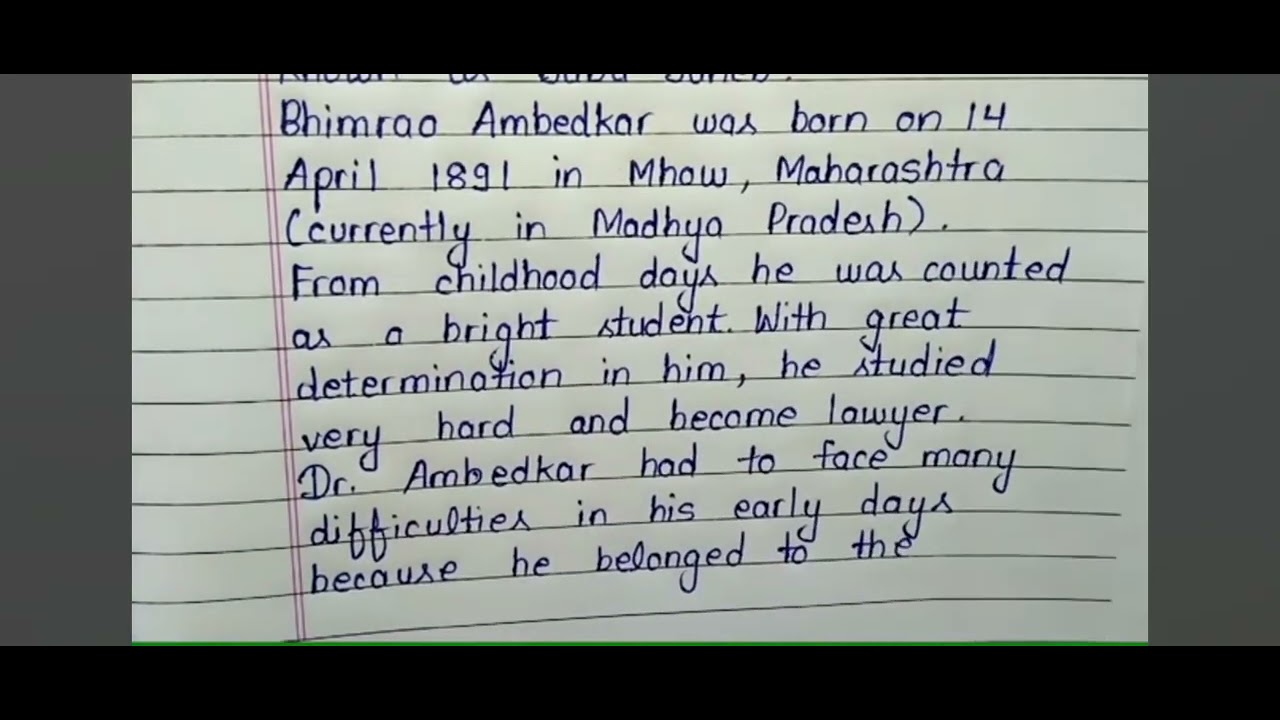 Bhimrao Ambedkar was born on 14
April 1891 in Mhow, Maharashtra
(currently in Madhya Pradesh).
From childhood days he was counted
as a bright student. With great
determination in him, he studied
very hard and become lawyer.
Dr. Ambedkar had to face many
difficulties in his early days
because he belonged to the